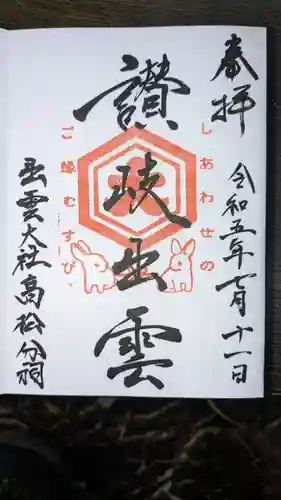 奉拝
令和五年七月十一日
しあわせの
讃岐出雲
ご縁むすび
出雲大社高松分祠